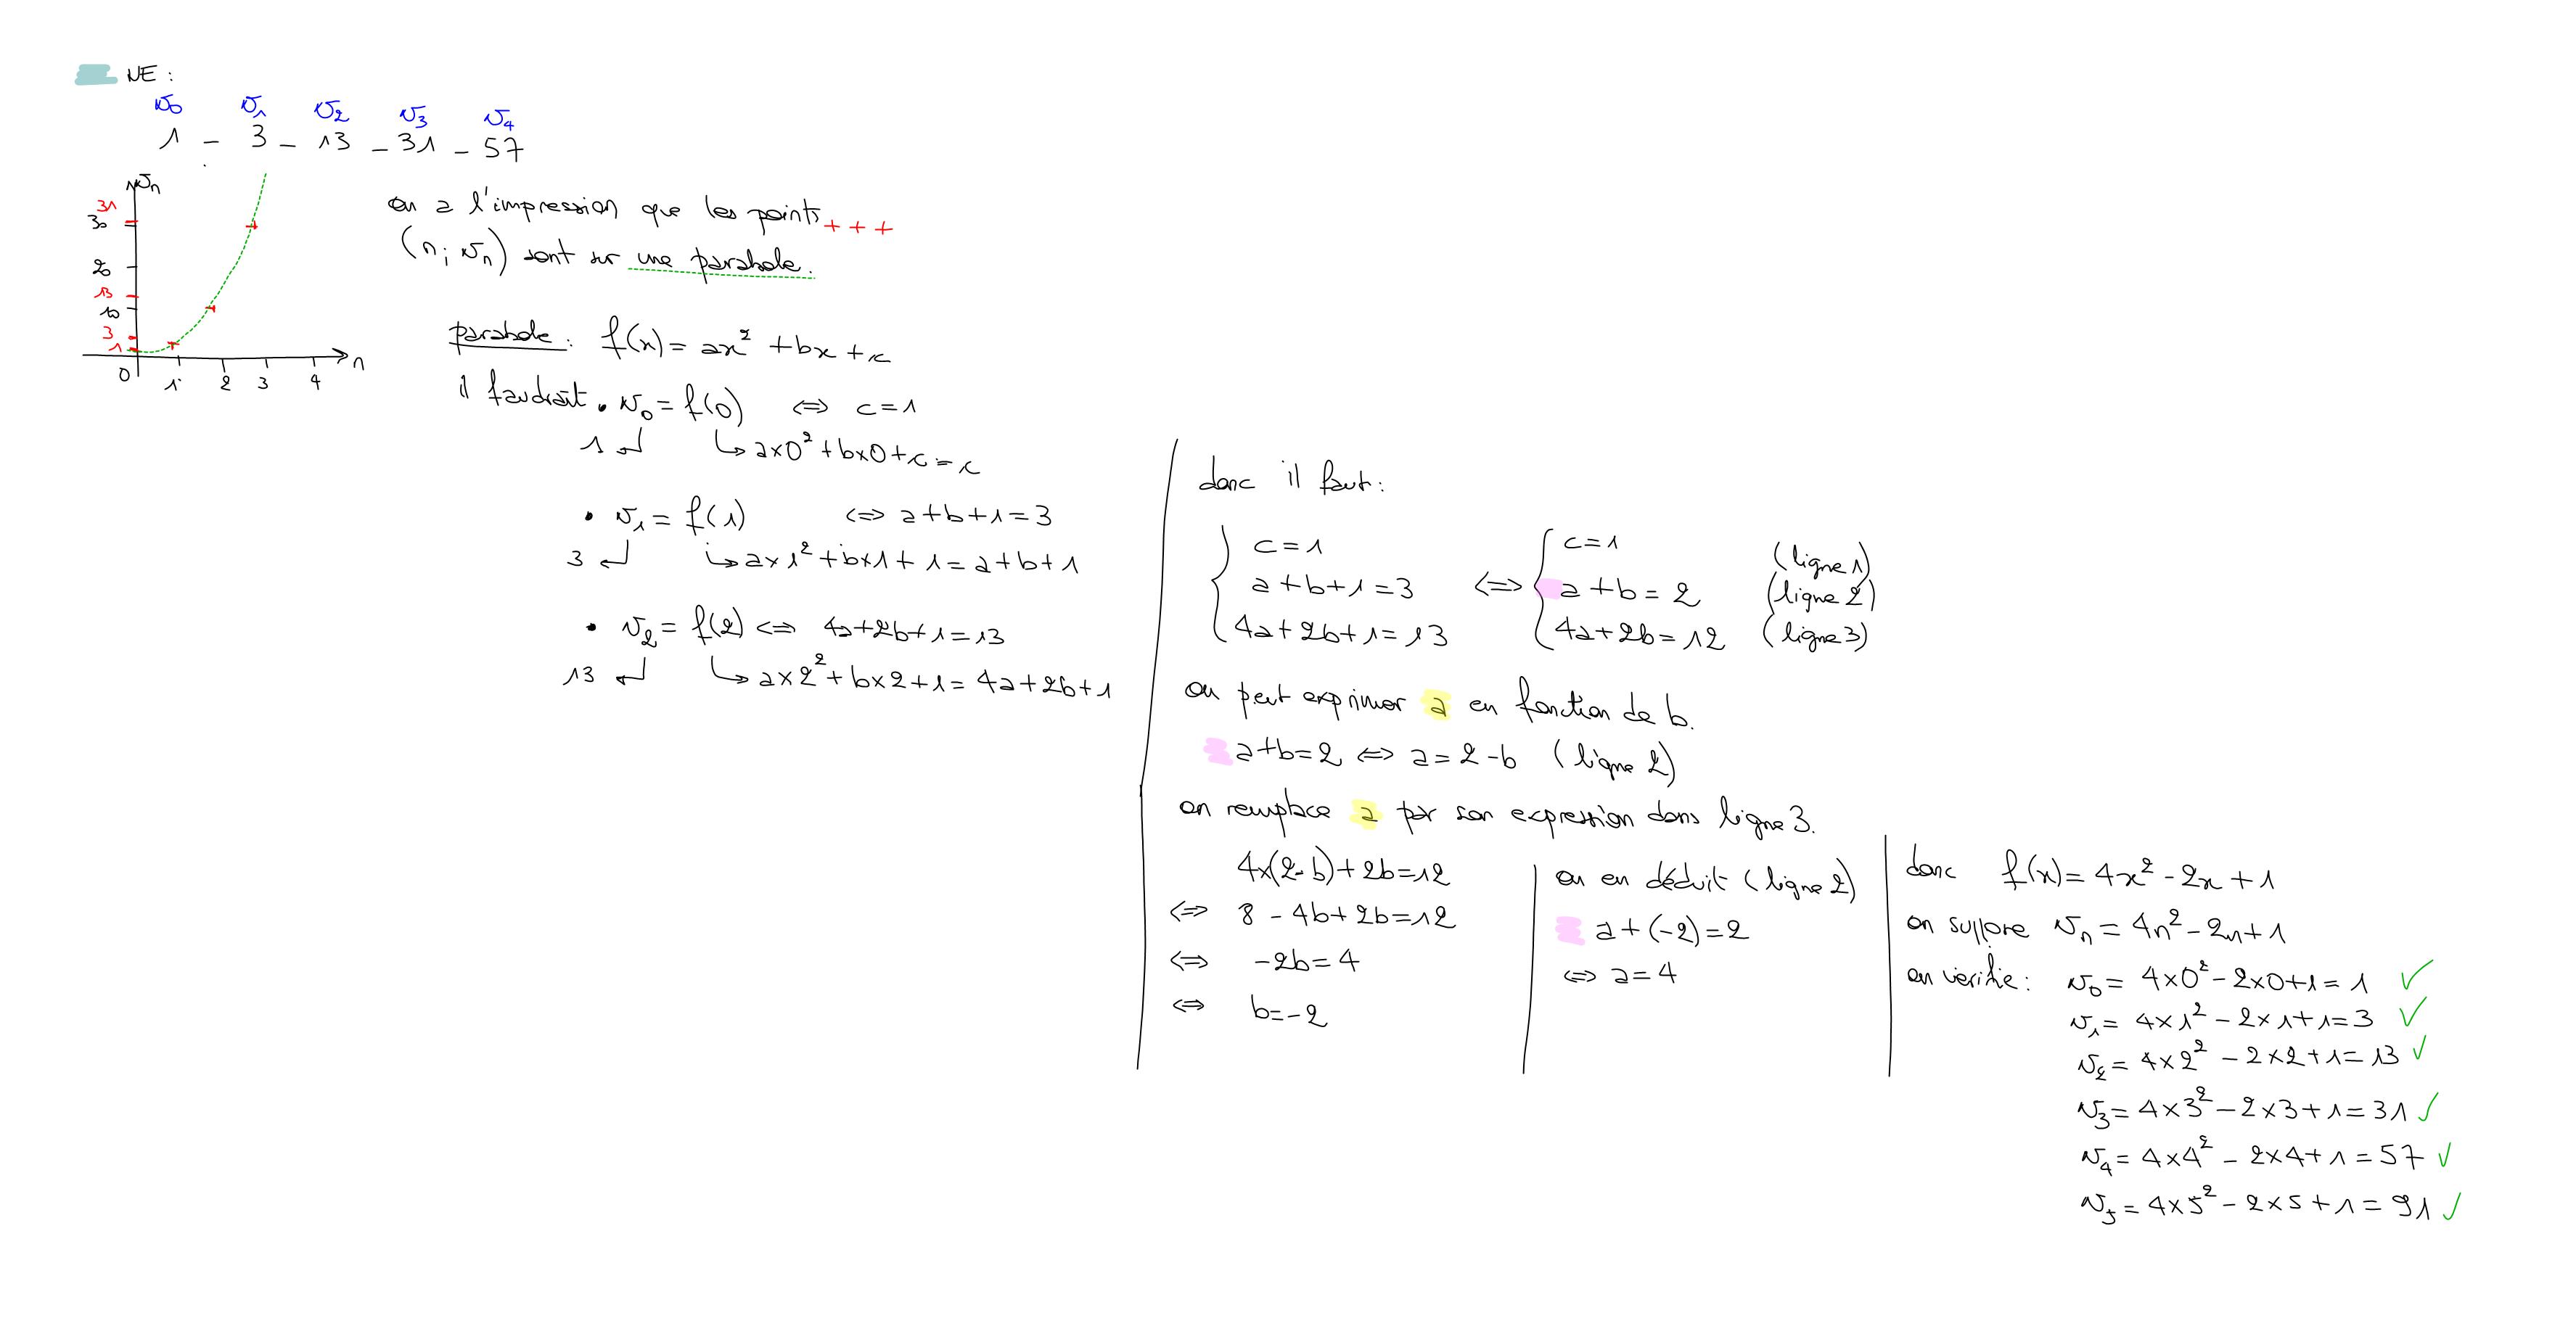 NE :
v₀ v₁ v₂ v₃ v₄
1 - 3 - 13 - 31 - 57
vₙ
31
30
20
13
10
3
1
0 1 2 3 4 n
on a l'impression que les points + + +
(n; vₙ) sont sur une parabole.
parabole : f(x) = ax² + bx + c
il faudrait • v₀ = f(0) ⇔ c = 1
1 ↵ ↳ a×0² + b×0 + c = c
• v₁ = f(1) ⇔ a+b+1 = 3
3 ↵ ↳ a×1² + b×1 + 1 = a+b+1
• v₂ = f(2) ⇔ 4a+2b+1 = 13
13 ↵ ↳ a×2² + b×2 + 1 = 4a+2b+1
donc il faut :
{ c = 1 ⇔ { c = 1 (ligne 1)
a+b+1 = 3 a+b = 2 (ligne 2)
4a+2b+1 = 13 4a+2b = 12 (ligne 3)
on peut exprimer a en fonction de b.
a+b=2 ⇔ a = 2-b (ligne 2)
on remplace a par son expression dans ligne 3.
4×(2-b)+2b=12
⇔ 8 - 4b+2b=12
⇔ -2b = 4
⇔ b = -2
on en déduit (ligne 2)
a+(-2) = 2
⇔ a = 4
donc f(x) = 4x² - 2x + 1
on suppose vₙ = 4n² - 2n + 1
on vérifie : v₀ = 4×0² - 2×0+1 = 1 ✓
v₁ = 4×1² - 2×1+1 = 3 ✓
v₂ = 4×2² - 2×2+1 = 13 ✓
v₃ = 4×3² - 2×3+1 = 31 ✓
v₄ = 4×4² - 2×4+1 = 57 ✓
v₅ = 4×5² - 2×5+1 = 91 ✓